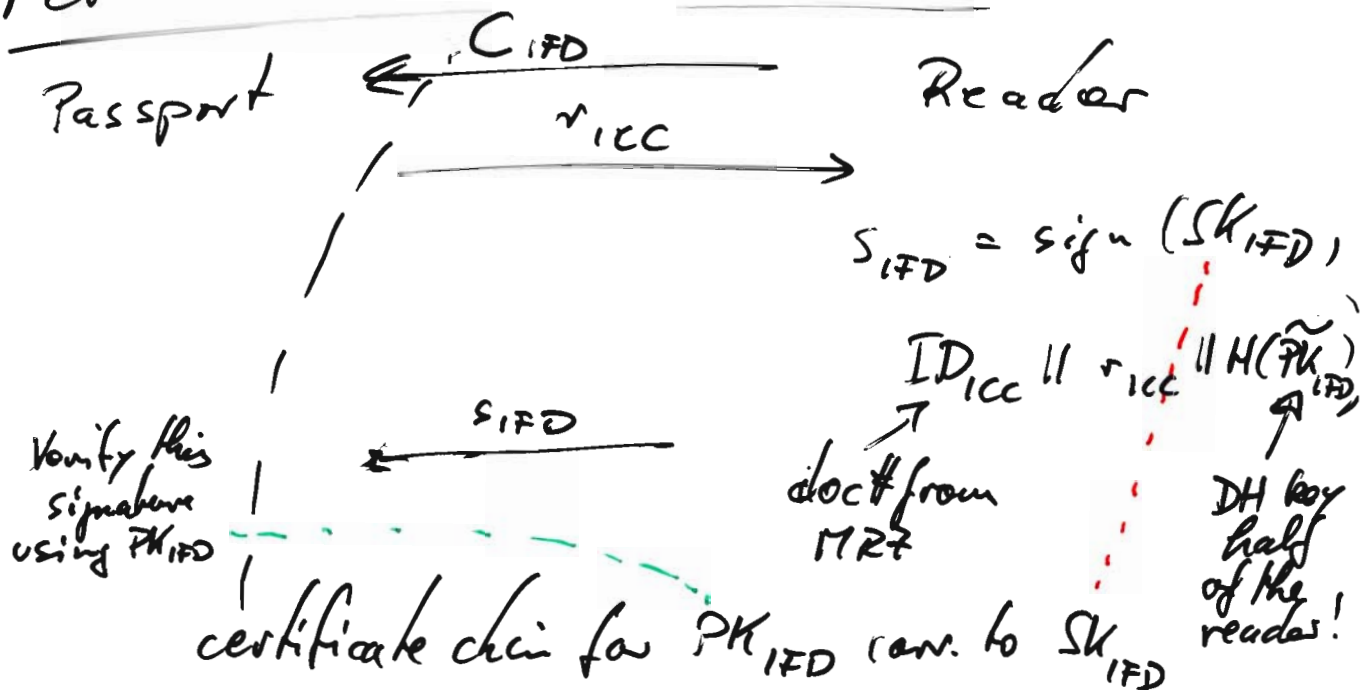 Passport C_IFD Reader
r_ICC
s_IFD = sign (SK_IFD,
ID_ICC || r_ICC || H(P̃K_IFD)
s_IFD
Verify this
signature
using PK_IFD
doc# from
MRZ
DH key
half
of the
reader!
certificate chain for PK_IFD corr. to SK_IFD